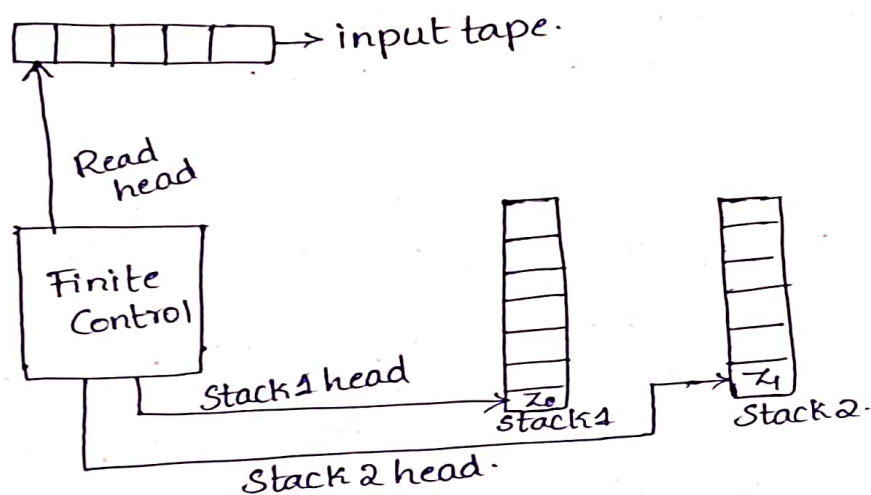 input tape.
Read
head
Finite
Control
Stack 1 head
Z₀
Stack 1
Z₁
Stack 2.
Stack 2 head.